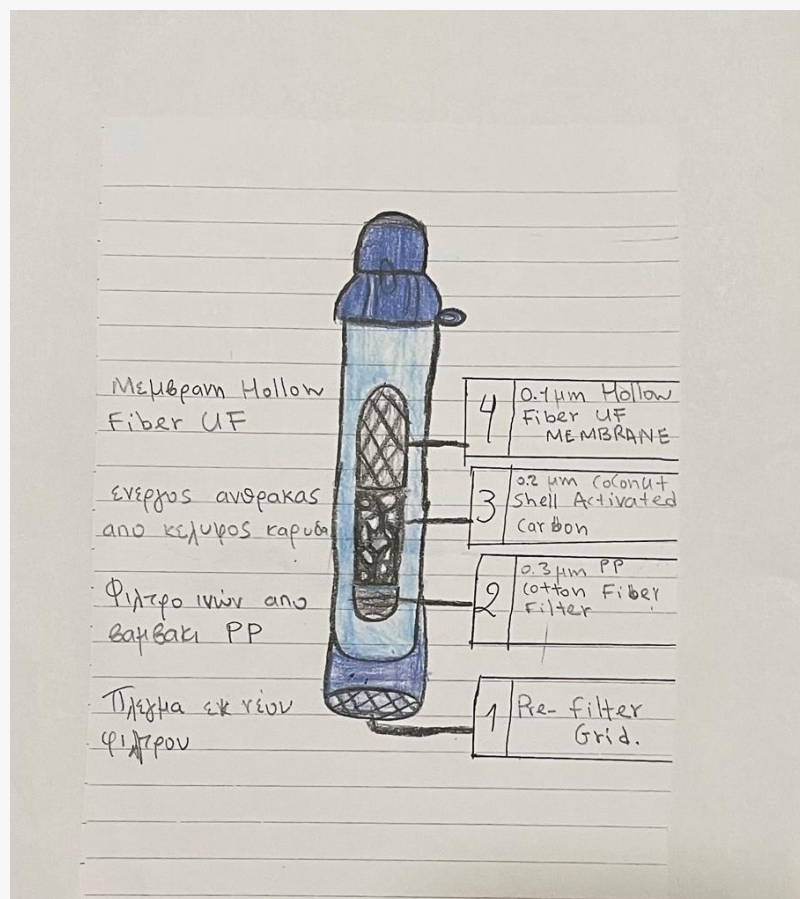 Μεμβρανη Hollow
Fiber UF
ενεργος ανθρακας
απο κελυφος καρυδα
Φιλτρο ινών απο
βαμβακι PP
Πλεγμα εκ νέου
φιλτρου
4
0.1μm Hollow
Fiber UF
MEMBRANE
3
0.2 μm Coconut
Shell Activated
Carbon
2
0.3μm PP
Cotton Fiber
Filter
1
Pre-filter
Grid.